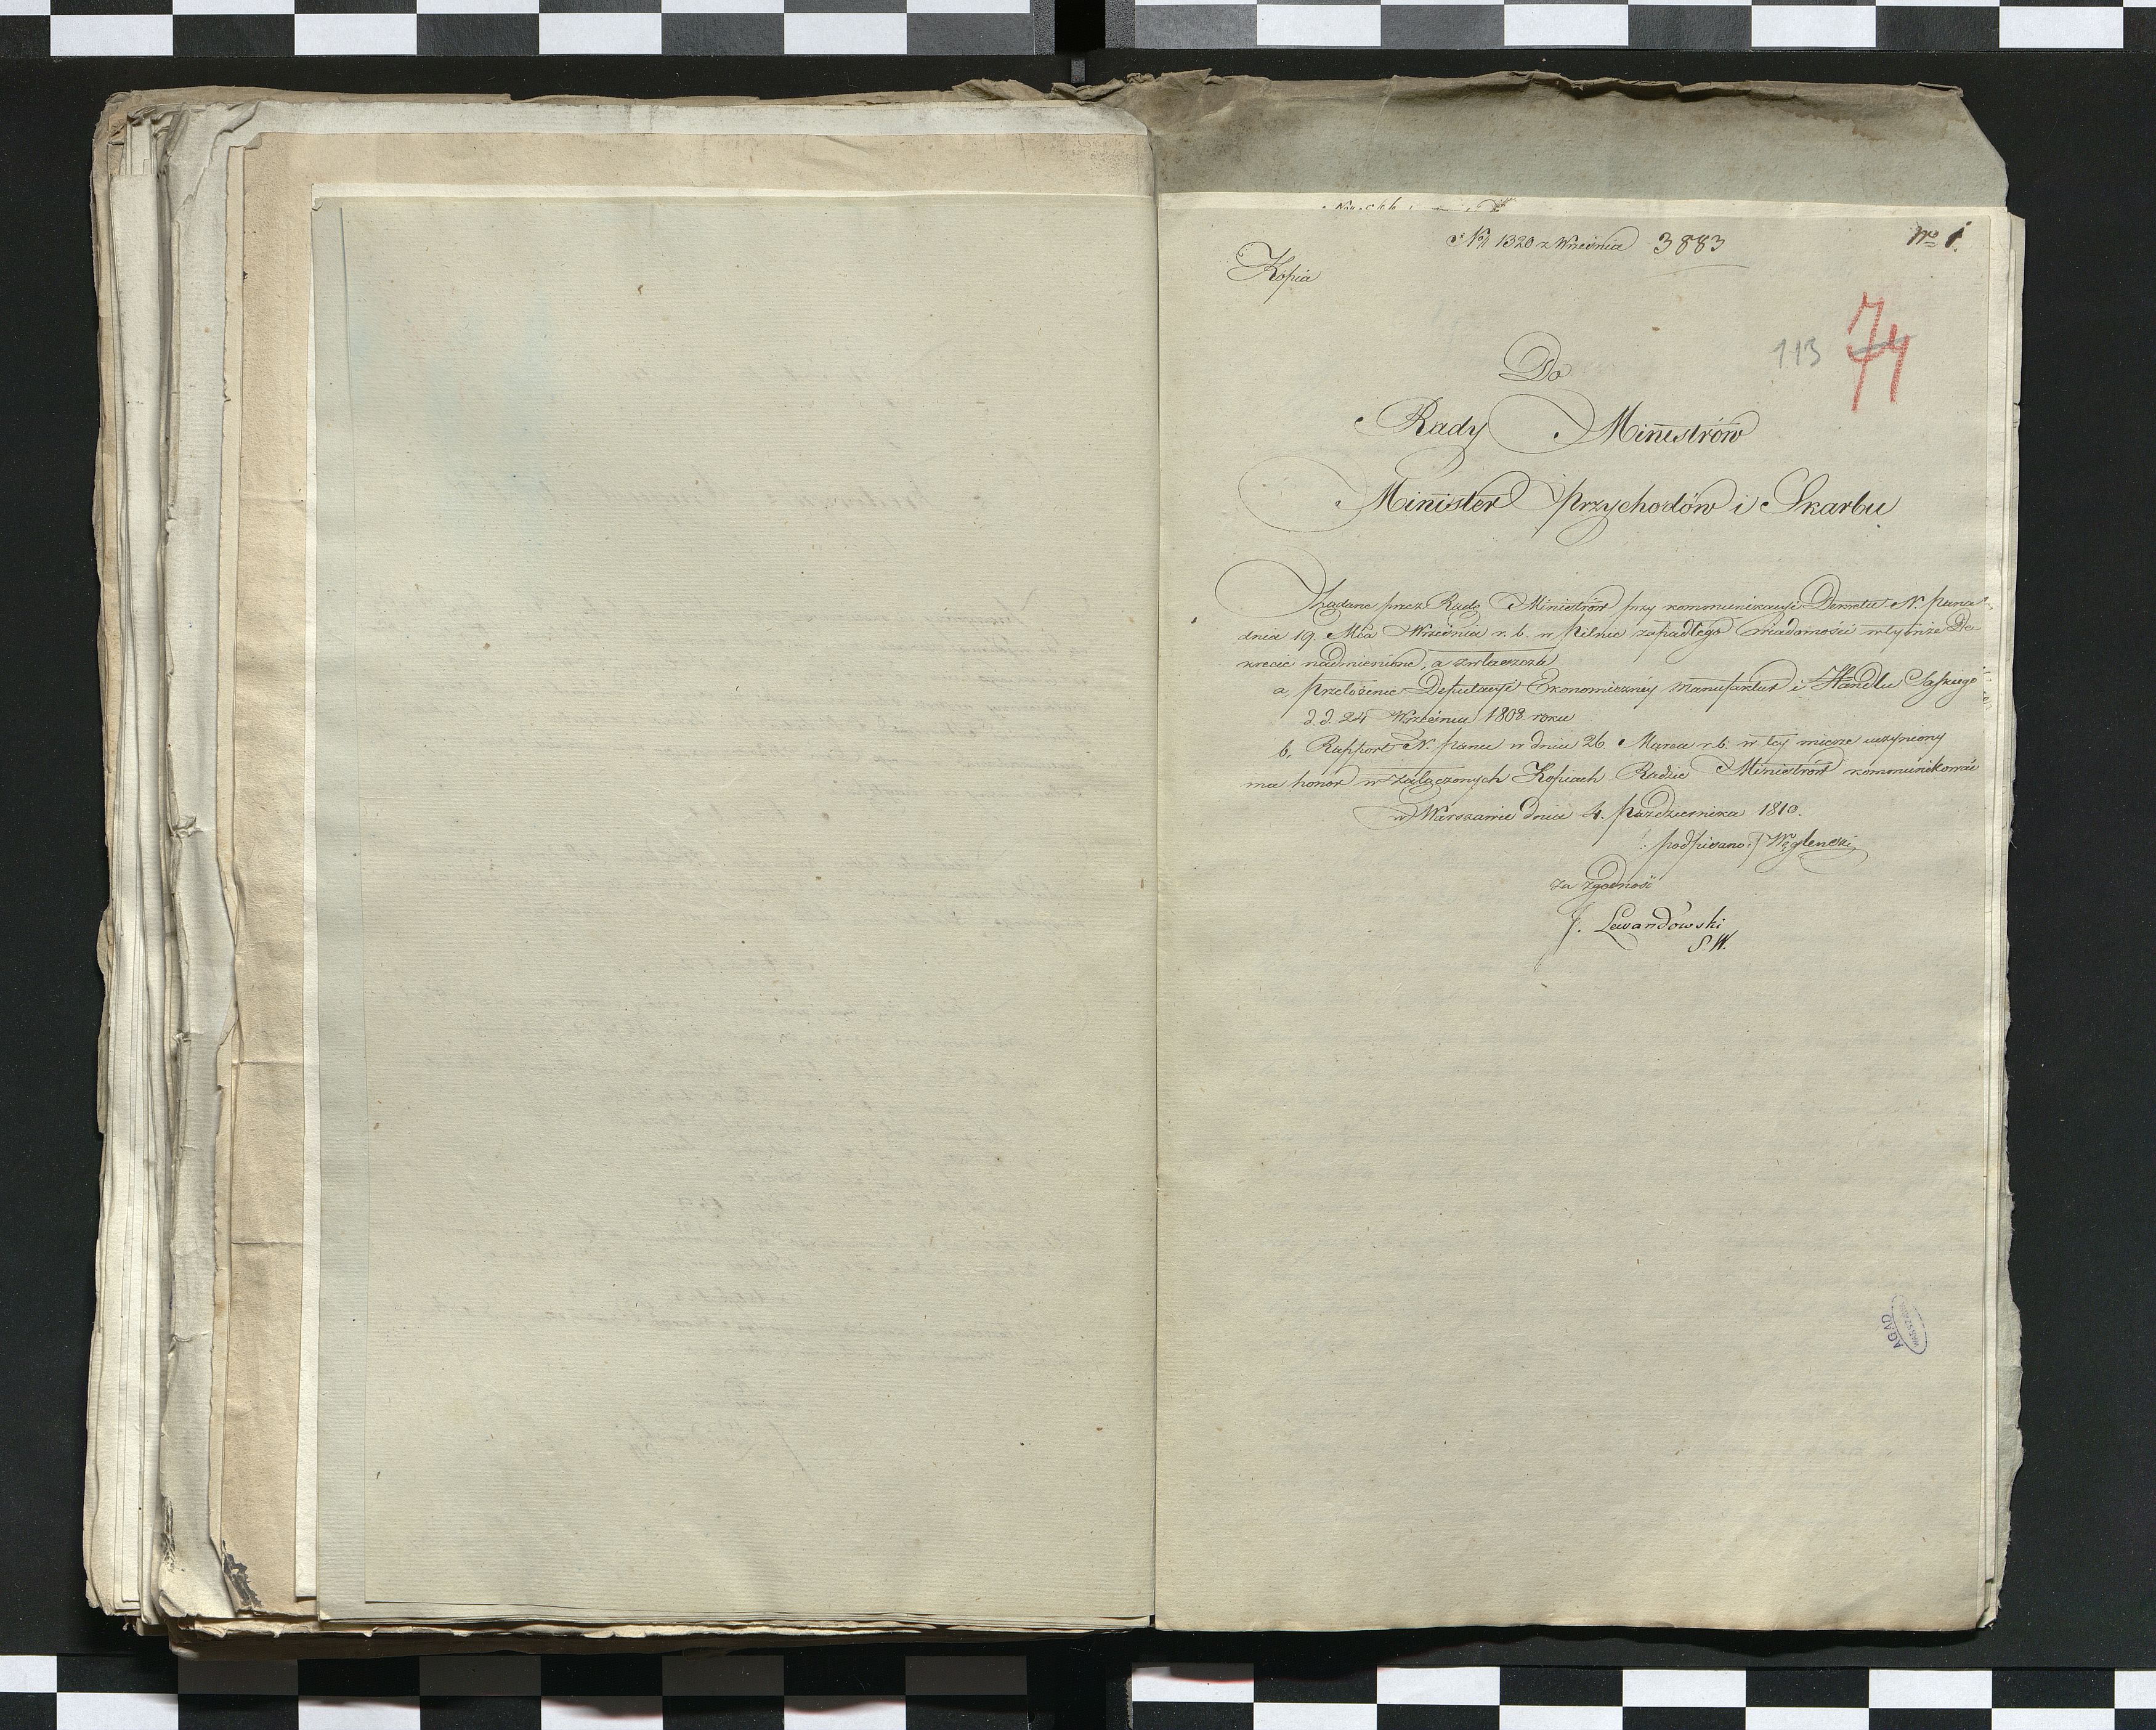 No 1320 z Września 3883
No 1.
Kopia
113 74
Do
Rady Ministrów
Minister Przychodów i Skarbu
Żądane przez Radę Ministrów przy kommunikacyi Dekretu N. Pana
dnia 19. Mca Września r. b. w Pilnic zapadłego wiadomości w tymże De-
krecie nadmienione, a zwłaszcza
a, Przełożenie Deputacyi Ekonomiczney Manufaktur i Handlu Saskiego
d. d. 24 Września 1808. roku
b, Rapport N. Panu w dniu 26. Marca r. b. w tey mierze uczyniony
ma honor w załączonych Kopiach Radzie Ministrów kommunikować
w Warszawie dnia 4. Października 1810.
: podpisano :/ Węgleński
za zgodność
J. Lewandowski
S. W.
AGAD
WARSZAWA